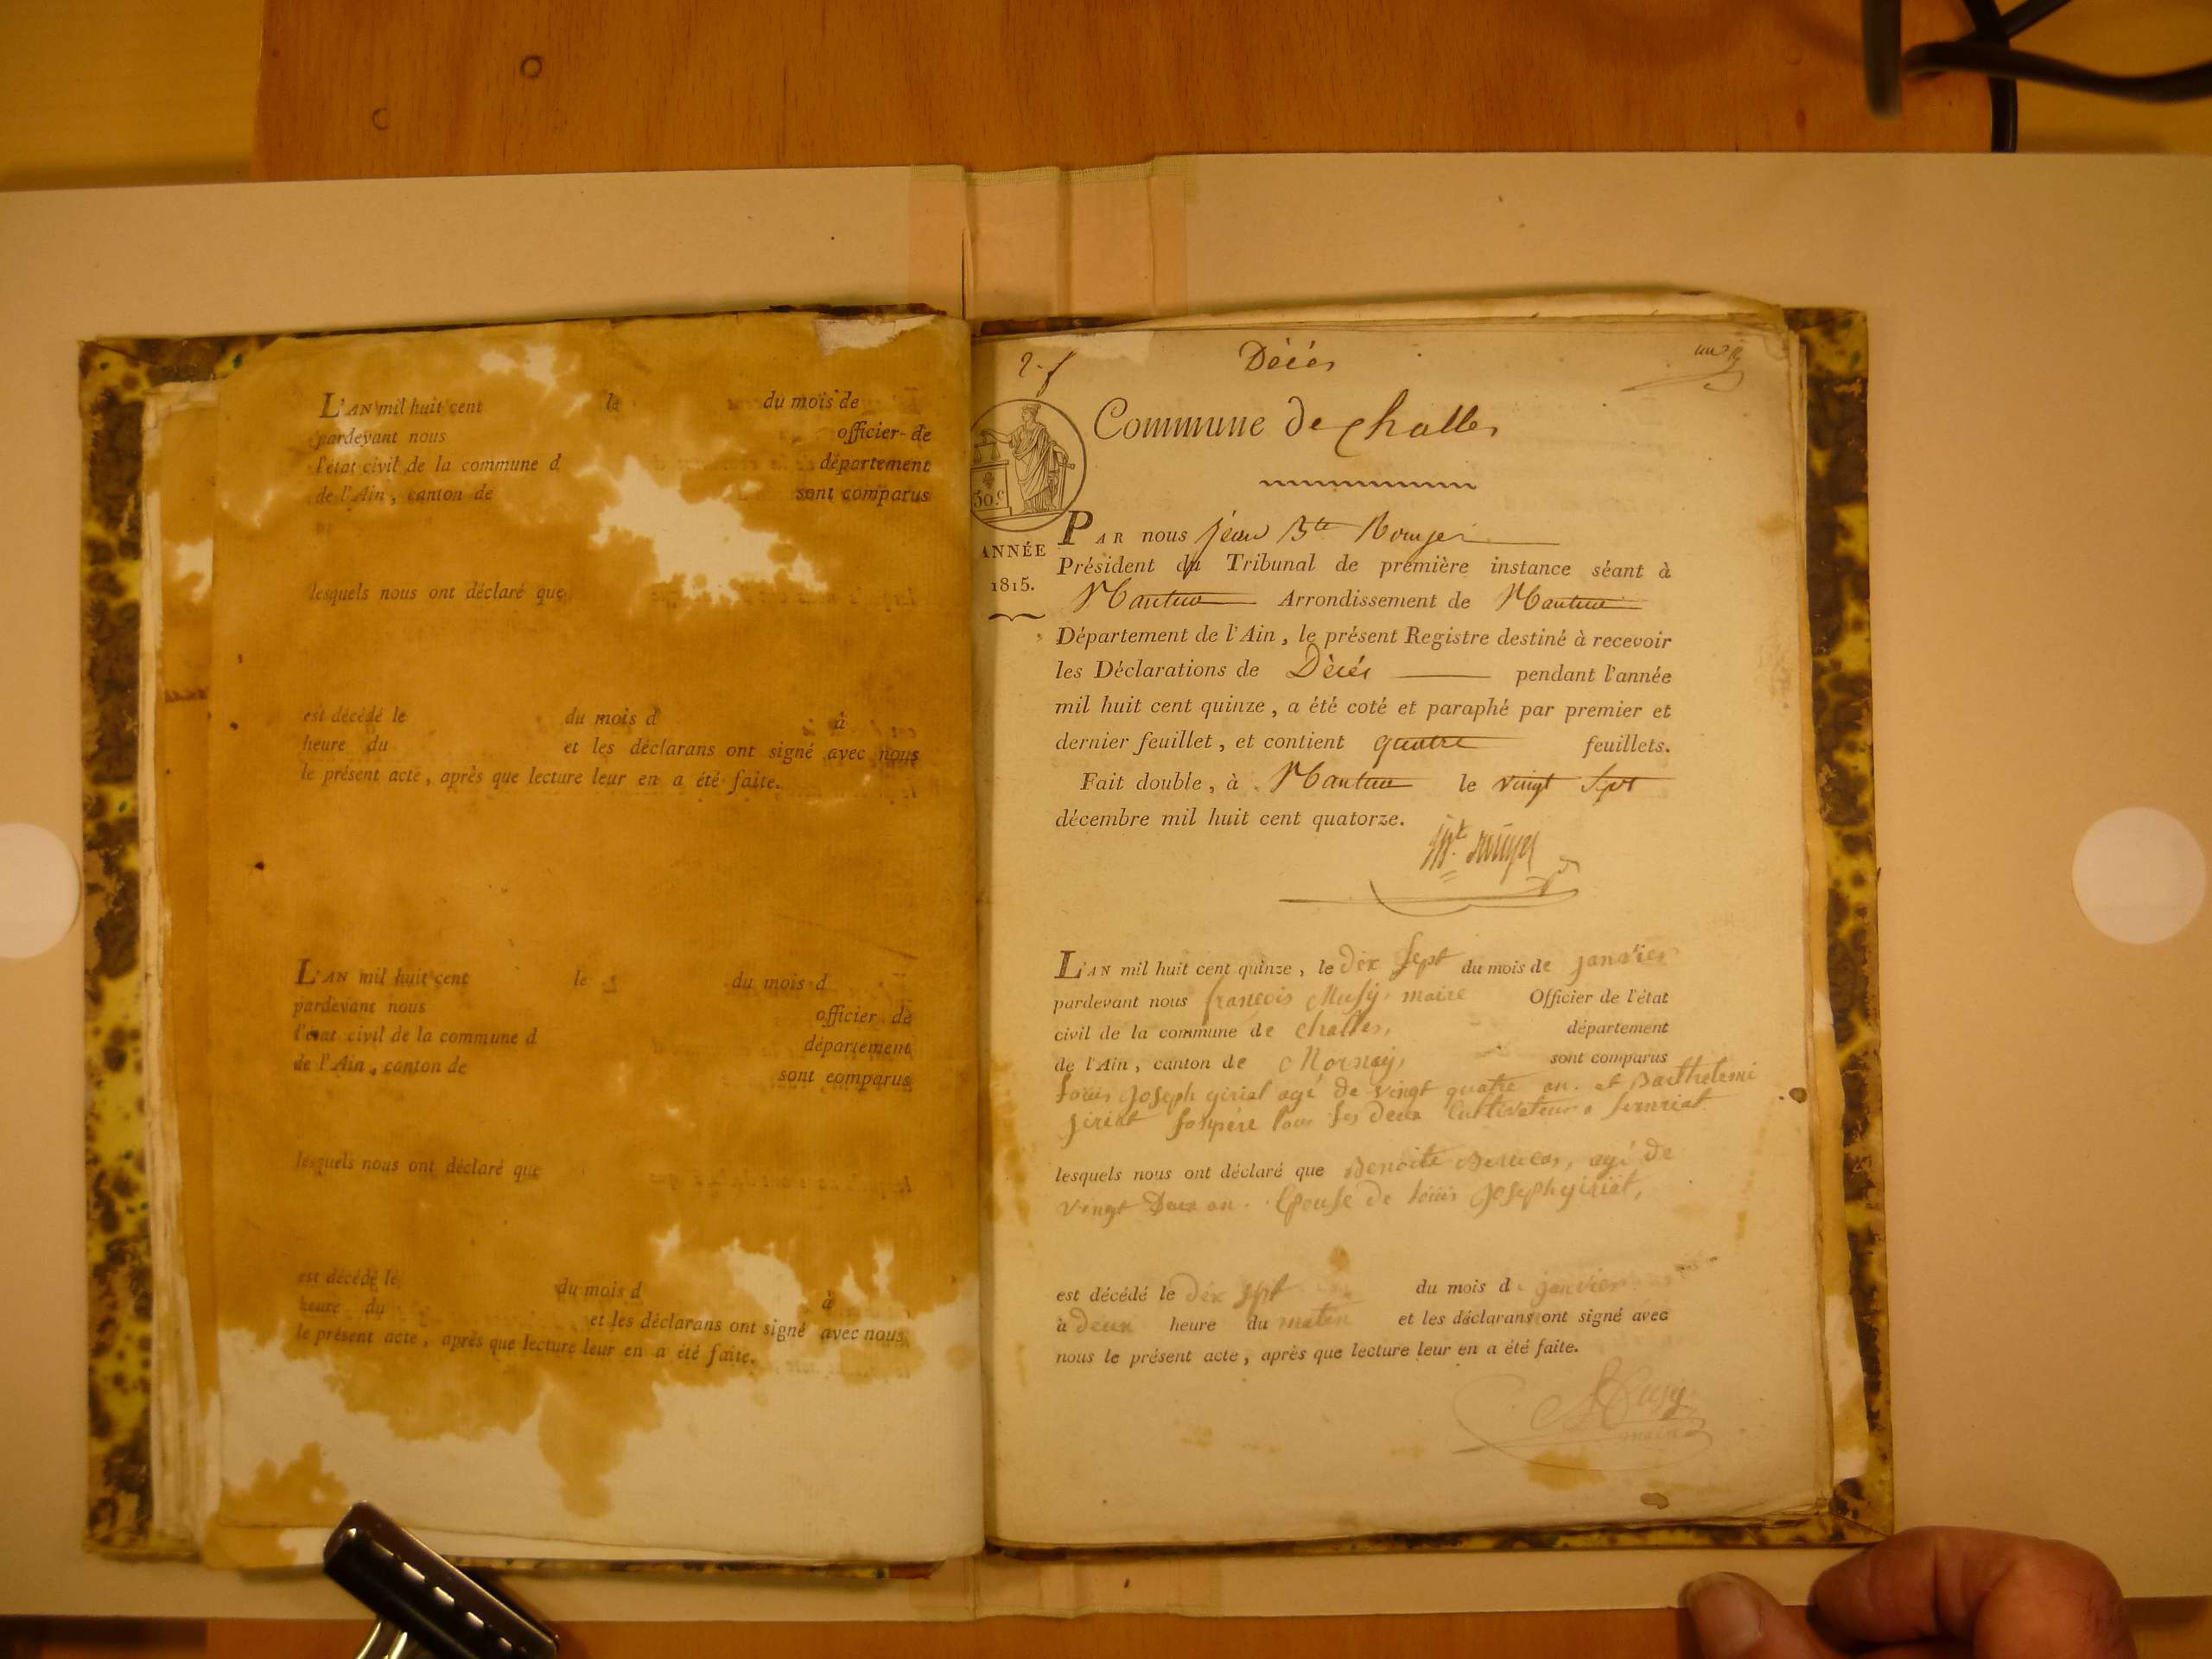 L'AN mil huit cent le du mois de
pardevant nous officier de
l'état civil de la commune d département
de l'Ain, canton de sont comparus
lesquels nous ont déclaré que
est décédé le du mois d à
heure du et les déclarans ont signé avec nous
le présent acte, après que lecture leur en a été faite.
L'AN mil huit cent le du mois d
pardevant nous officier de
l'état civil de la commune d département
de l'Ain, canton de sont comparus
lesquels nous ont déclaré que
est décédé le du mois d à
heure du et les déclarans ont signé avec nous
le présent acte, après que lecture leur en a été faite.
Décés
Commune de challes
50.c
ANNÉE
1815.
PAR nous jean Bte Rouyer
Président du Tribunal de première instance séant à
Nantua Arrondissement de Nantua
Département de l'Ain, le présent Registre destiné à recevoir
les Déclarations de Décés pendant l'année
mil huit cent quinze, a été coté et paraphé par premier et
dernier feuillet, et contient quatre feuillets.
Fait double, à Nantua le vingt Sept
décembre mil huit cent quatorze.
L'AN mil huit cent quinze, le dix Sept du mois de janvier
pardevant nous françois Musÿ, maire Officier de l'état
civil de la commune de challes, département
de l'Ain, canton de Mornay, sont comparus
Louis Joseph giriat agé de vingt quatre an. et Barthelemi
giriat Son père tous les deux Cultivateur a
lesquels nous ont déclaré que Benoite agé de
vingt Deux an. Epouse de Louis Joseph giriat,
est décédé le dix sept du mois de janvier
à deux heure du matin et les déclarans ont signé avec
nous le présent acte, après que lecture leur en a été faite.
Musy
maire